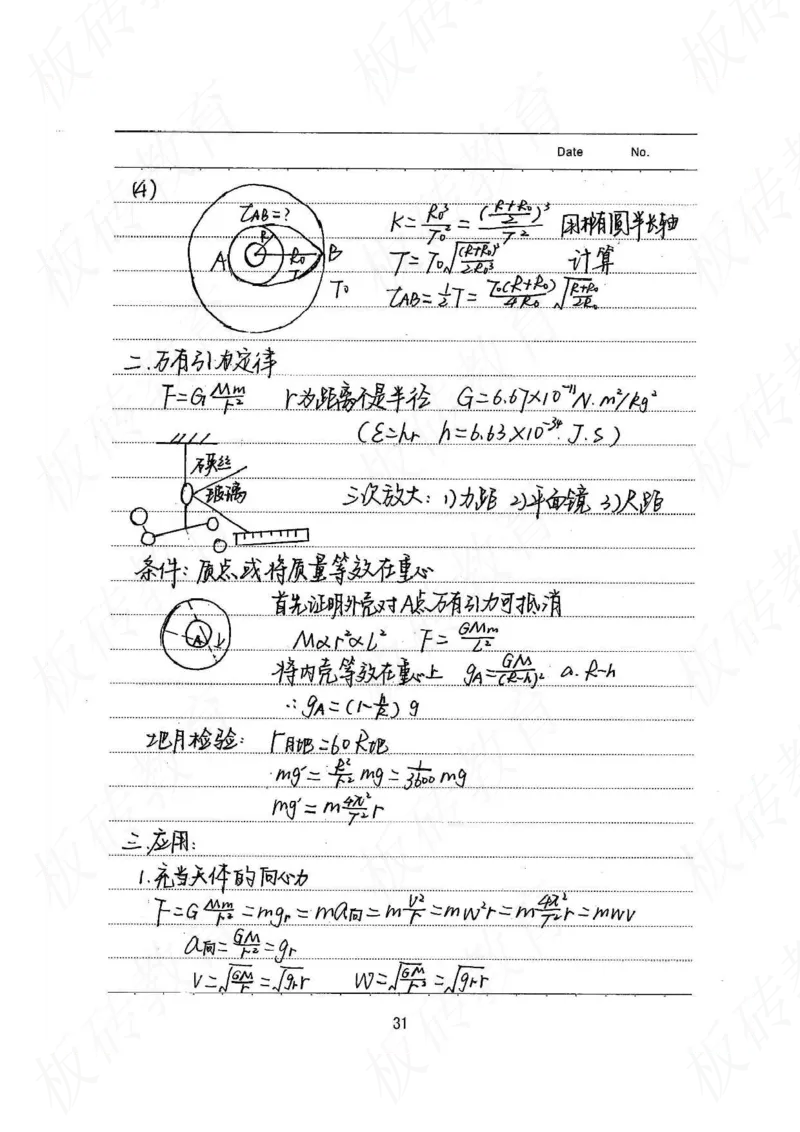 Date No.
(4)
t_AB=?
R
A R₀ B
T
T₀
K = R₀³/T₀² = ((R+R₀)/2)³/T² 用椭圆半长轴
T = T₀√((R+R₀)³/2R₀³) 计算
t_AB = ½T = T₀(R+R₀)/4R₀ √((R+R₀)/2R₀)
二.万有引力定律
F=G Mm/r² r为距离不是半径 G=6.67×10⁻¹¹N.m²/kg²
(ε=hr h=6.63×10⁻³⁴.J.s)
玻璃
三次放大: 1)力距 2)平面镜 3)尺距
条件: 质点或将质量等效在重心
首先证明外壳对A点万有引力可抵消
A
M∝r²∝L² F= GMm/L²
将内壳等效在重心上 g_A= GM/(R-h)² a.R-h
∴g_A=(1-h/R)g
地月检验: r月地=60R地
mg′= R²/r² mg = 1/3600 mg
mg′= m 4π²/T² r
三.应用:
1.充当天体的向心力
F=G Mm/r² = mgᵣ = ma向 = m v²/r = mw²r = m 4π²/T² r = mwv
a向= GM/r² = gᵣ
v=√(GM/r) = √(gᵣr) w=√(GM/r³) = √(gᵣr)
31
板砖教育